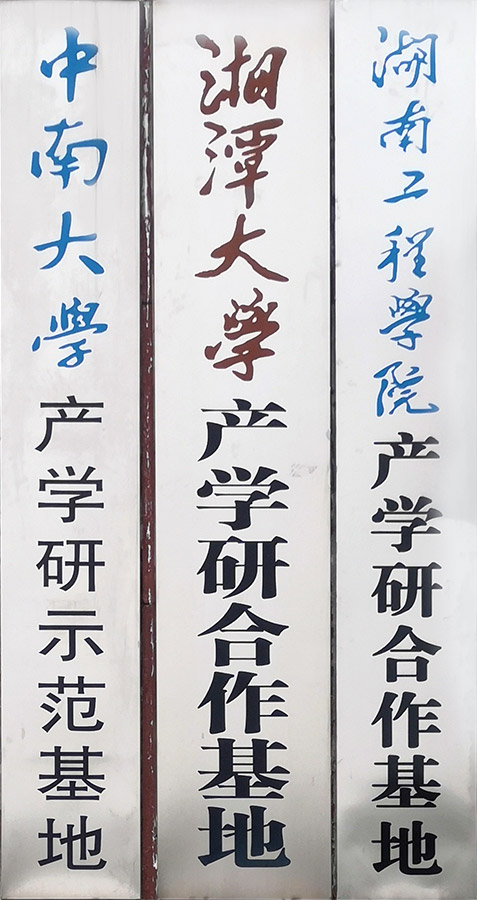 中南大學产学研示范基地
湘潭大學产学研合作基地
湖南工程學院产学研合作基地